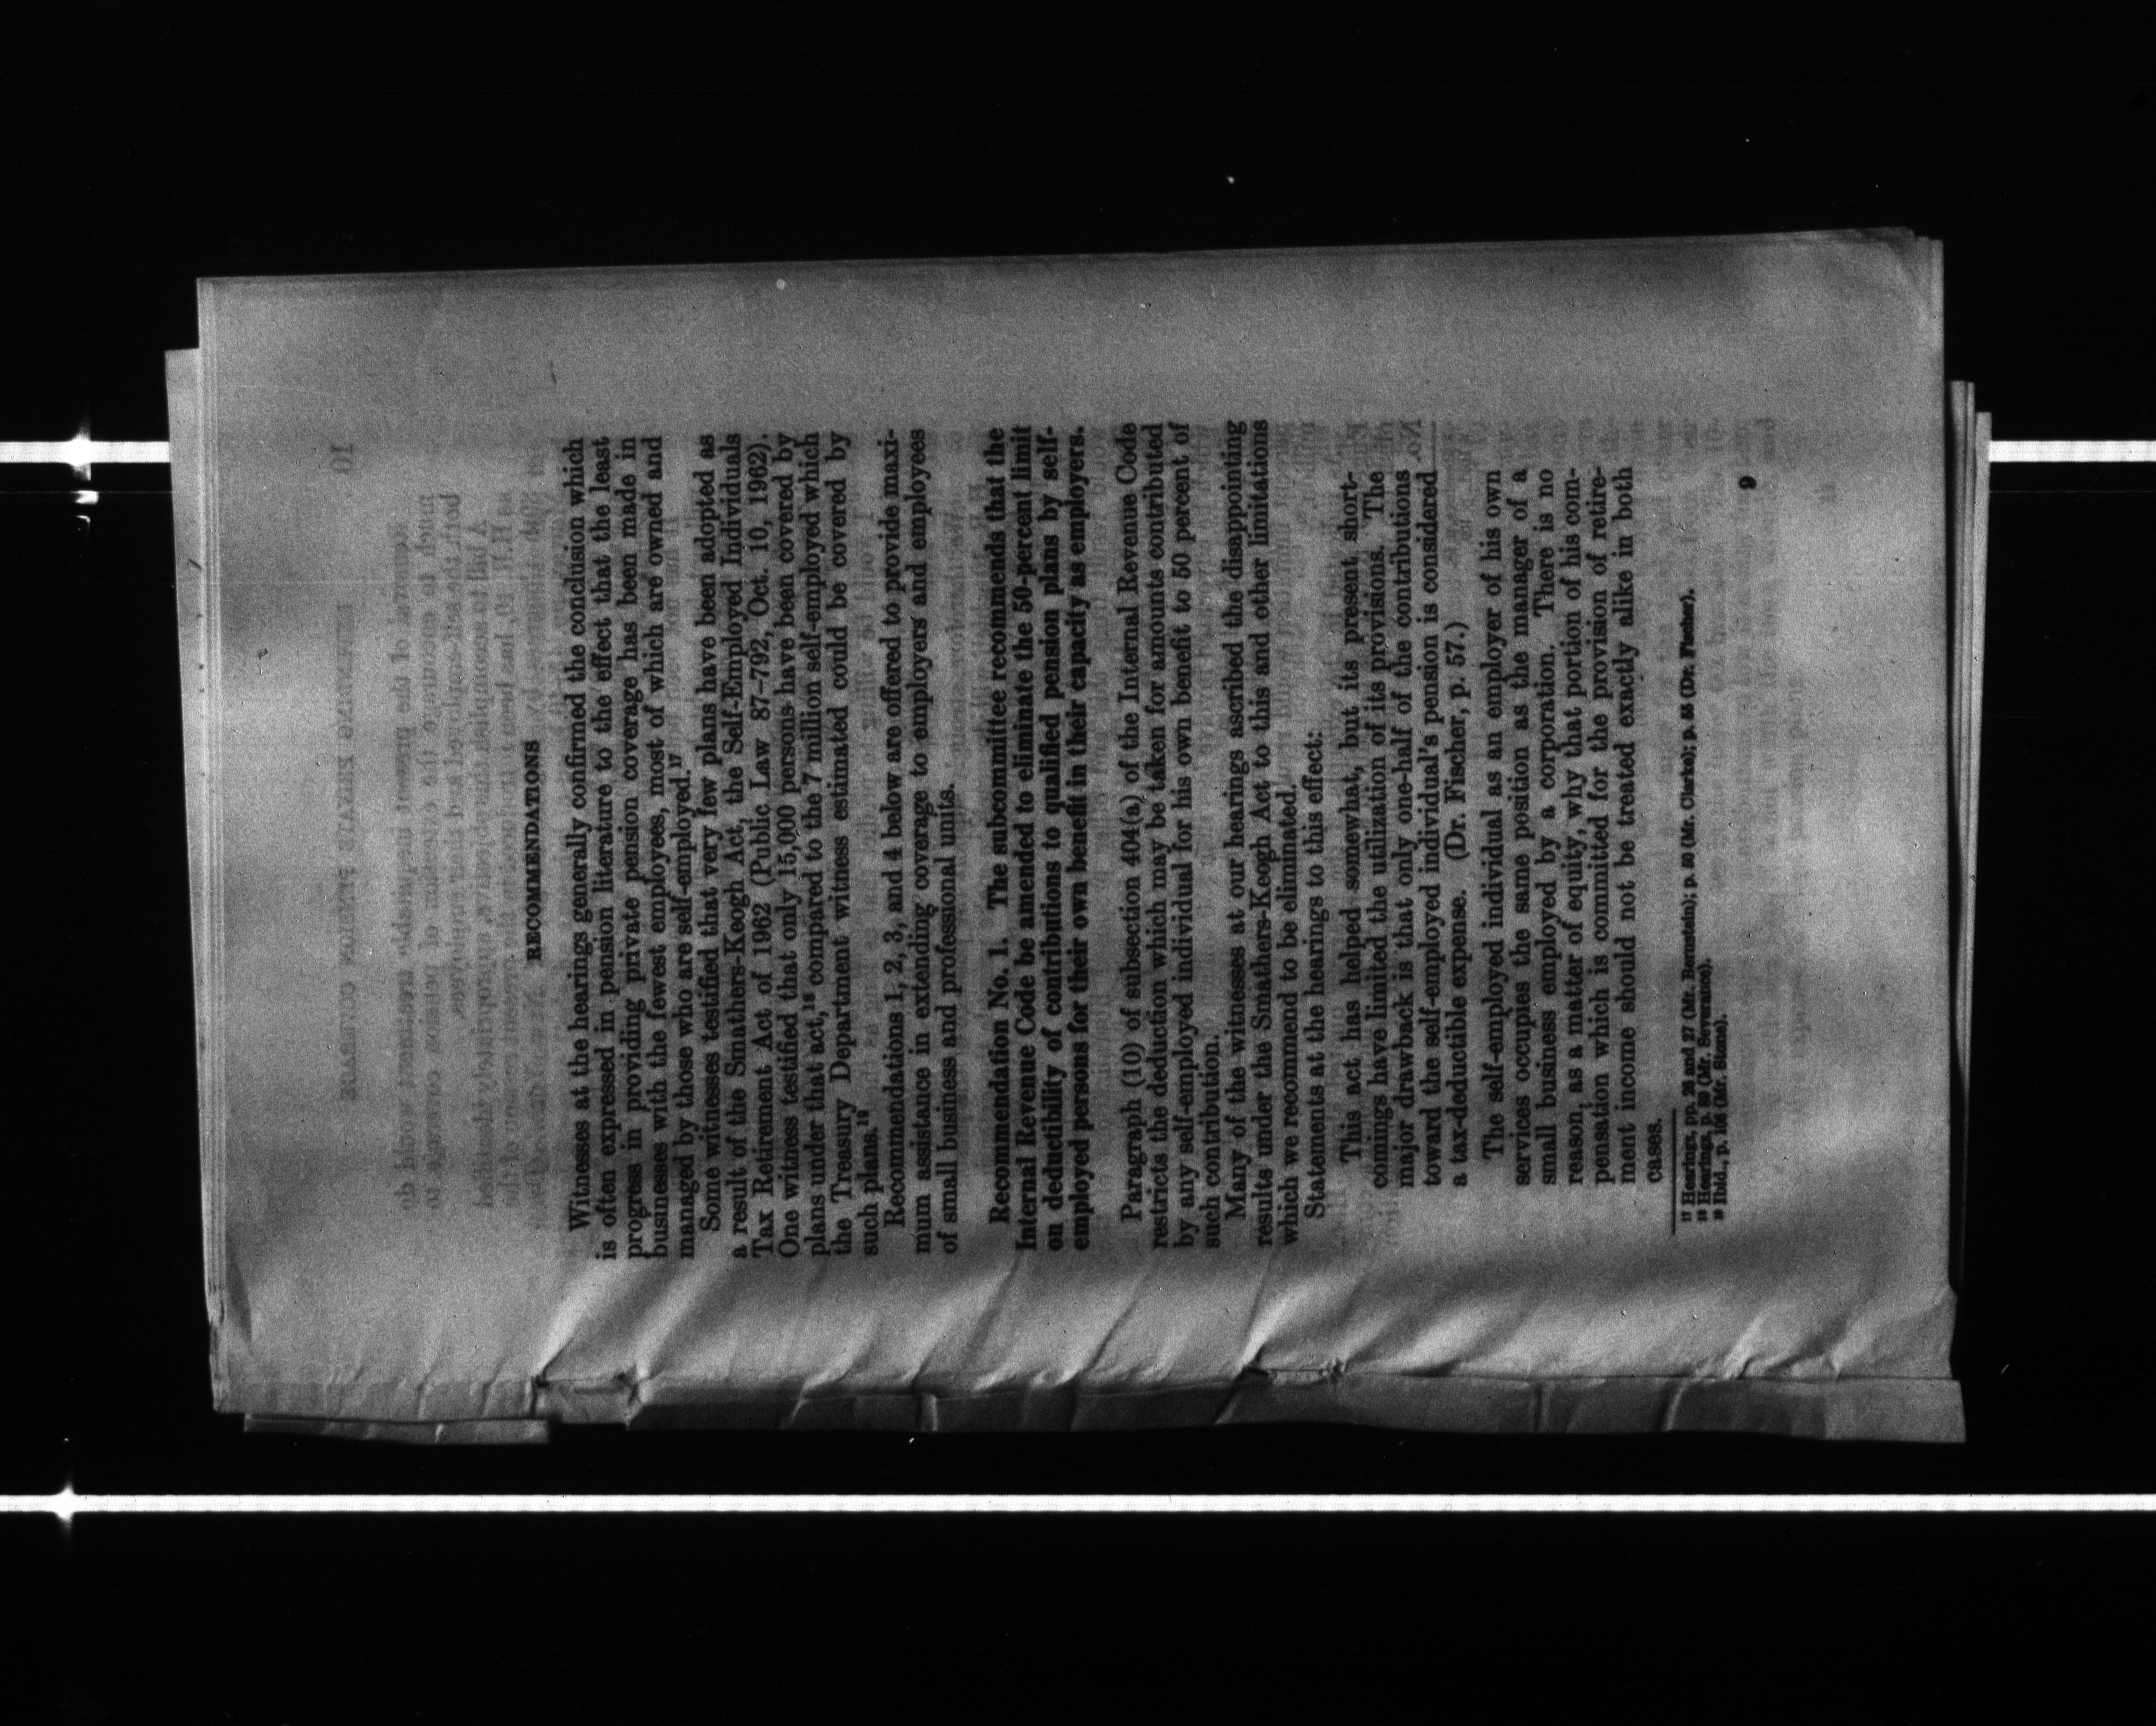 RECOMMENDATIONS
Witnesses at the hearings generally confirmed the conclusion which
is often expressed in pension literature to the effect that the least
progress in providing private pension coverage has been made in
businesses with the fewest employees, most of which are owned and
managed by those who are self-employed.¹⁷
Some witnesses testified that very few plans have been adopted as
a result of the Smathers-Keogh Act, the Self-Employed Individuals
Tax Retirement Act of 1962 (Public Law 87-792, Oct. 10, 1962).
One witness testified that only 15,000 persons have been covered by
plans under that act,¹⁸ compared to the 7 million self-employed which
the Treasury Department witness estimated could be covered by
such plans.¹⁹
Recommendations 1, 2, 3, and 4 below are offered to provide maxi-
mum assistance in extending coverage to employers and employees
of small business and professional units.
Recommendation No. 1. The subcommittee recommends that the
Internal Revenue Code be amended to eliminate the 50-percent limit
on deductibility of contributions to qualified pension plans by self-
employed persons for their own benefit in their capacity as employers.
Paragraph (10) of subsection 404(a) of the Internal Revenue Code
restricts the deduction which may be taken for amounts contributed
by any self-employed individual for his own benefit to 50 percent of
such contribution.
Many of the witnesses at our hearings ascribed the disappointing
results under the Smathers-Keogh Act to this and other limitations
which we recommend to be eliminated.
Statements at the hearings to this effect:
This act has helped somewhat, but its present short-
comings have limited the utilization of its provisions. The
major drawback is that only one-half of the contributions
toward the self-employed individual's pension is considered
a tax-deductible expense. (Dr. Fischer, p. 57.)
The self-employed individual as an employer of his own
services occupies the same position as the manager of a
small business employed by a corporation. There is no
reason, as a matter of equity, why that portion of his com-
pensation which is committed for the provision of retire-
ment income should not be treated exactly alike in both
cases.
¹⁷ Hearings, pp. 26 and 27 (Mr. Bernstein); p. 50 (Mr. Clarke); p. 55 (Dr. Fischer).
¹⁸ Hearings, p. 89 (Mr. Severance).
¹⁹ Ibid., p. 106 (Mr. Stone).
9